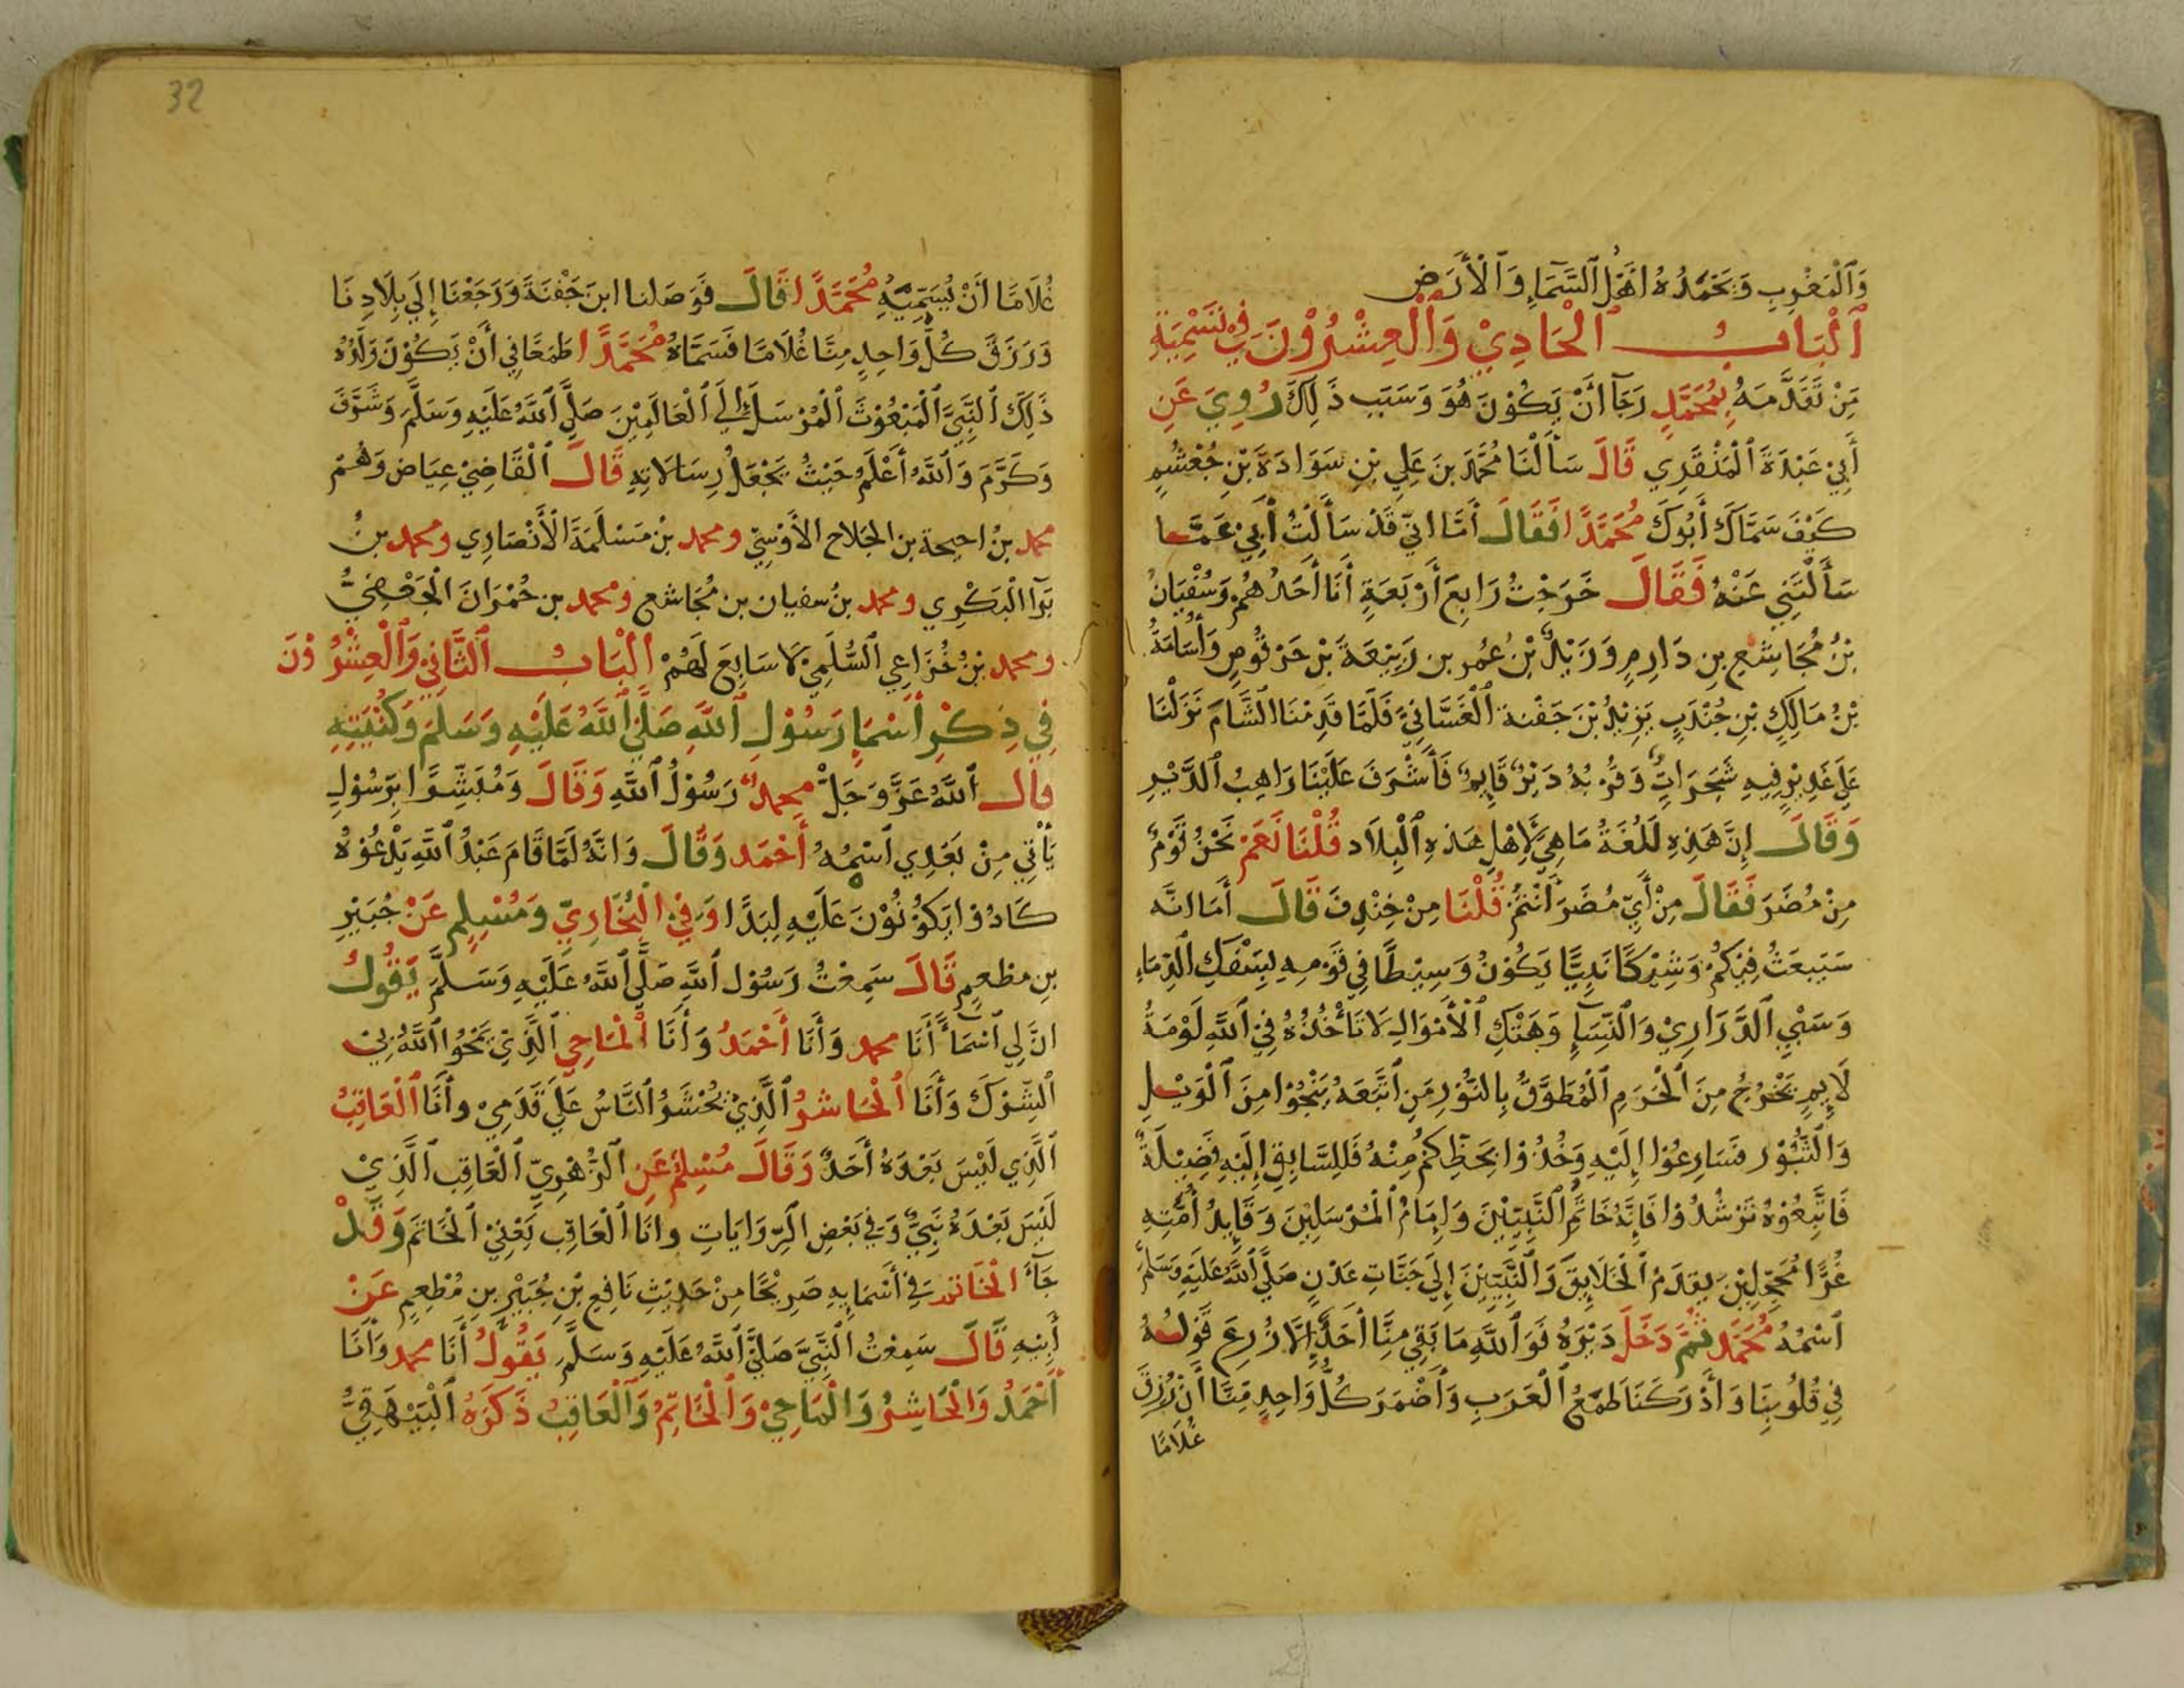 وَٱلْمَغْرِبِ وَيَحْمَدُهُ اَهْلُ ٱلسَّمَآءِ وَٱلْأَرَضِ
ٱلْبَابُ ٱلْحَادِيْ وَٱلْعِشْرُوْنَ فِيْ تَسْمِيَةِ
مَنْ تَقَدَّمَهُ بِمُحَمَّدٍ رَجَآ أَنْ يَكُوْنَ هُوَ وَسَبَبِ ذَلِكَ رُوِيَ عَنِ
أَبِيْ عَبْدَةَ ٱلْمَنْقَدِي قَالَ سَأَلْنَا مُحَمَّدَ بنَ عَلِي بْنِ سَوَادَةَ بْنِ جُعْشُمٍ
كَيْفَ سَمَّاكَ أَبُوكَ مُحَمَّدًا فَقَالَ أَمَا اِنِّي قَدْ سَأَلْتُ أَبِيْ عَمَّا
سَأَلْتَنِي عَنْهُ فَقَالَ خَرَجْتُ رَابِعَ أَرْبَعَةٍ أَنَا أَحَدُهُمْ وَسُفْيَانُ
بْنُ مُجَاشِعِ بنِ دَارِمٍ وَزَيْدُ بْنُ عُمر بن رَبِيْعَةَ بْنِ حَرْقُوصٍ وَأُسَامَةُ
بْنُ مَالِكِ بْنِ جُنْدَبٍ يَزِيْدُ بْنَ جَفْنَة ٱلْغَسَّانِيَّ فَلَمَّا قَدِمْنَا ٱلشَّامَ نَزَلْنَا
عَلَى غَدِيْرٍ فِيهِ شَجَرَاتٌ وَقُرْبُهُ دَيْرٌ قَايِمٌ فَأَشْرَفَ عَلَيْنَا رَاهِبُ ٱلدَّيْرِ
وَقَالَ إِنَّ هَذِهِ لَلُغَةُ مَا هِيَ لِأَهْلِ هَذِهِ ٱلْبِلَاد قُلْنَا نَعَمْ نَحْنُ قَوْمٌ
مِنْ مُضَرَ فَقَالَ مِنْ أَيِّ مُضَرَ أَنْتُمْ قُلْنَا مِنْ خِنْدِفَ قَالَ أَمَا اِنَّه
سَيَبعَثُ فِيْكُمْ وَشِيْكًا نَبِيًّا يَكُوْنُ وَسِيْطًا فِي قَوْمِهِ لِيَسْفِكِ ٱلدِّمَاءِ
وَسَبْيِ ٱلذَّرَارِيْ وَٱلنِّسَآءِ وَهَتْكِ ٱلْأَمْوَالِ لَا تَأْخُذُهُ فِيْ ٱللَّهِ لَوْمَةُ
لَايِمٍ يَخْرُجُ مِنَ ٱلْحَرَمِ ٱلْمُطَوَّقُ بِالنُّوْرِ مَنِ ٱتَّبَعَهُ يَنْجُوْا مِنَ ٱلْوَيْلِ
وَالثُّبُوْرِ فَسَارِعُوْا إِلَيْهِ وَخُذُوْا بِحَظِّكُمْ مِنْهُ فَلِلسَّابِقِ إِلَيْهِ فَضِيْلَةٌ
فَاتَّبِعُوْهُ تَرْشُدُوْا فَإِنَّهُ خَاتَمُ ٱلنَّبِيِّيْنَ وَإِمَامُ ٱلْمُرْسَلِيْنَ وَقَايِدُ أُمَّتِهِ
غُرًّا مُحَجَّلِيْنَ يقدَمُ ٱلْخَلَايِقَ وَٱلنَّبِيِّيْنَ إِلَى جَنَّاتِ عَدْنٍ صَلَّى ٱللَّهُ عَلَيْهِ وَسَلَّمَ
ٱسْمُهُ مُحَمَّد ثُمَّ دَخَلَ دَيْرَهُ فَوَٱللَّهِ مَا بَقِيَ مِنَّا أَحَدٌ إِلَّا زُرِعَ قَوْلُهُ
فِي قُلُوبِنَا وَأَدْرَكَنَا طَمَعُ ٱلْعَرَبِ وَأَضْمَرَ كُلُّ وَاحِدٍ مِنَّا أَنْ رُزِقَ
غُلَامًا
32
غُلَامًا أَنْ يُسَمِّيَهُ مُحَمَّدًا قَالَ فَوَصَلنا ابنَ جَفْنَةَ وَرَجَعْنَا إِلَى بِلَادِنَا
وَرَزَقَ كُلَّ وَاحِدٍ مِنَّا غُلَامًا فَسَمَّاهُ مُحَمَّدًا طَمَعًا فِي أَنْ يَكُوْنَ وَلَدُهُ
ذَلِكَ ٱلنَّبِيَّ ٱلْمَبْعُوْثَ ٱلْمُرْسَلَ إِلَى ٱلْعَالَمِيْنَ صَلَّى ٱللَّهُ عَلَيْهِ وَسَلَّمَ وَشَرَّفَ
وَكَرَّمَ وَٱللَّهُ أَعْلَمُ حَيْثُ يَجْعَلُ رِسَالَاتِهِ قَالَ ٱلْقَاضِيْ عِيَاض وَهُمْ
محمد بنُ احيحة بن الجَلاح الأَوْسِيّ ومحمد بْنُ مَسْلَمَةَ الْأَنْصَارِي ومحمد بنُ
بَرَآ الْبَكْرِي ومحمد بنُ سفيان بن مُجَاشع ومحمد بن حُمْرَانَ الْجَعْفِيُّ
ومحمد بْنُ خُزَاعِي ٱلسُّلَمِيْ لَا سَابِعَ لَهُمْ ٱلْبَابُ ٱلثَّانِيْ وَٱلْعِشْرُوْنَ
فِي ذِكْرِ أَسْمَآءِ رَسُوْلِ ٱللَّهِ صَلَّى ٱللَّهُ عَلَيْهِ وَسَلَّمَ وَكُنْيَتِهِ
قال ٱللَّهُ عَزَّ وَجَلَّ محمدٌ رَسُوْلُ ٱللَّهِ وَقَالَ وَمُبَشِّرًا بِرَسُوْلٍ
يَأْتِي مِنْ بَعْدِي ٱسْمُهُ أَحْمَد وَقَالَ وَانَّهُ لَمَّا قَامَ عَبْدُ ٱللَّهِ يَدْعُوْهُ
كَادُوْا يَكُوْنُوْنَ عَلَيْهِ لِبَدًا وَفِيْ الْبُخَارِيِّ وَمُسْلِمٍ عَنْ جُبَيْرِ
بنِ مطْعِمٍ قَالَ سَمِعْتُ رَسُوْل ٱللَّهِ صَلَّى ٱللَّهُ عَلَيْهِ وَسَلَّمَ يَقُولُ
انَّ لِي ٱسْمَآءً أَنَا محمد وَأَنَا أَحْمَدُ وَأَنَا ٱلْمَاحِي ٱلَّذِيْ يَمْحُوا ٱللَّهُ بِيْ
ٱلشِّرْكَ وَأَنَا ٱلْحَاشرُ ٱلَّذِيْ يُحْشَرُ ٱلنَّاسُ عَلَى قَدَمِيْ وأَنَا ٱلْعَاقِبُ
ٱلَّذِي لَيْسَ بَعْدَهُ أَحَدٌ وَقَالَ مُسْلِمٌ عَنِ ٱلزُّهْرِيِّ ٱلْعَاقِب ٱلَّذِيْ
لَيْسَ بَعْدَهُ نَبِيٌّ وَفِي بَعْضِ ٱلرِّوَايَاتِ وانَا ٱلْعَاقِب يَعْنِيْ ٱلْخَاتَمَ وَقَدْ
جَآءَ الْخَاتَمُ فِي أَسْمَايِهِ صَرِيْحًا مِنْ حَدِيْثِ نَافِعِ بْنِ جُبَيْرِ بنِ مُطْعِمٍ عَنْ
أَبِيْهِ قَالَ سَمِعْتُ ٱلنَّبِيَّ صَلَّى ٱللَّهُ عَلَيْهِ وَسَلَّمَ يَقُوْلُ أَنَا محمد وَأَنَا
أَحْمَدُ وَالْحَاشِرُ وَالْمَاحِيْ وَٱلْخَاتِمُ وَٱلْعَاقِبُ ذَكَرَهُ ٱلْبَيْهَقِيُّ